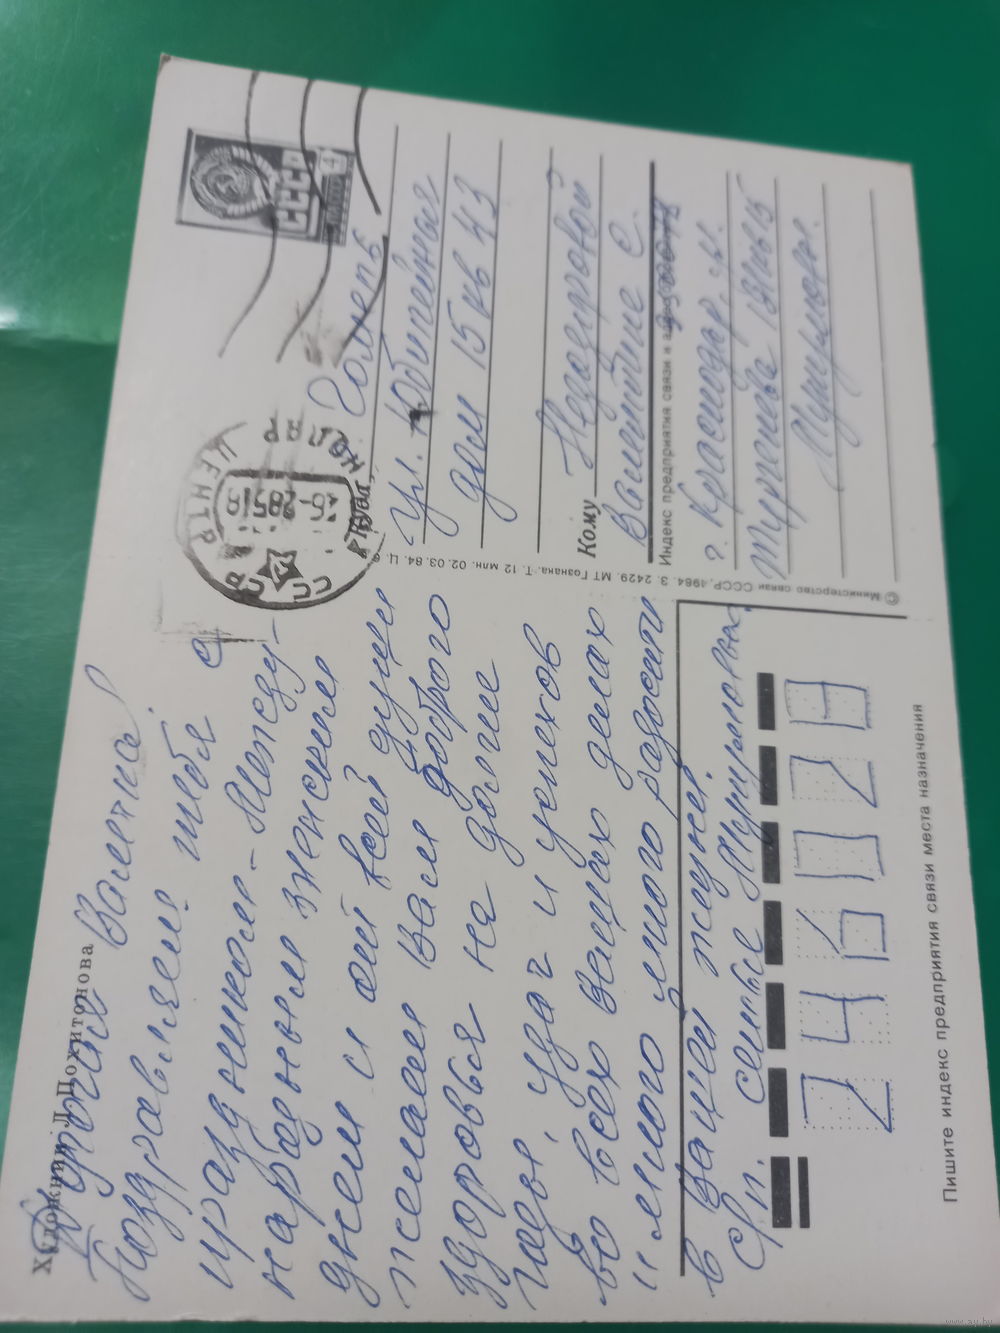 Художник Л. Похитонова
Дорогая Валетка!
Поздравляем тебя с
праздником – Между-
народным женским
днем и от всей души
желаем Вам доброго
здоровья на долгие
годы, удач и успехов
во всех ваших делах
и много, много радости
в вашей жизни.
семье
246020
Пишите индекс предприятия связи места назначения
© Министерство связи СССР. 1984. З. 2429. МТ Гознака. Т. 12 млн. 02.03.84. Ц.
СССР
4
СССР
ЦЕНТР
Гомель
ул. Юбилейная
дом 15 кв 43
Кому
Валентине С.
Индекс предприятия связи и адрес
г. Краснодар,
Тургенева
www.ay.by